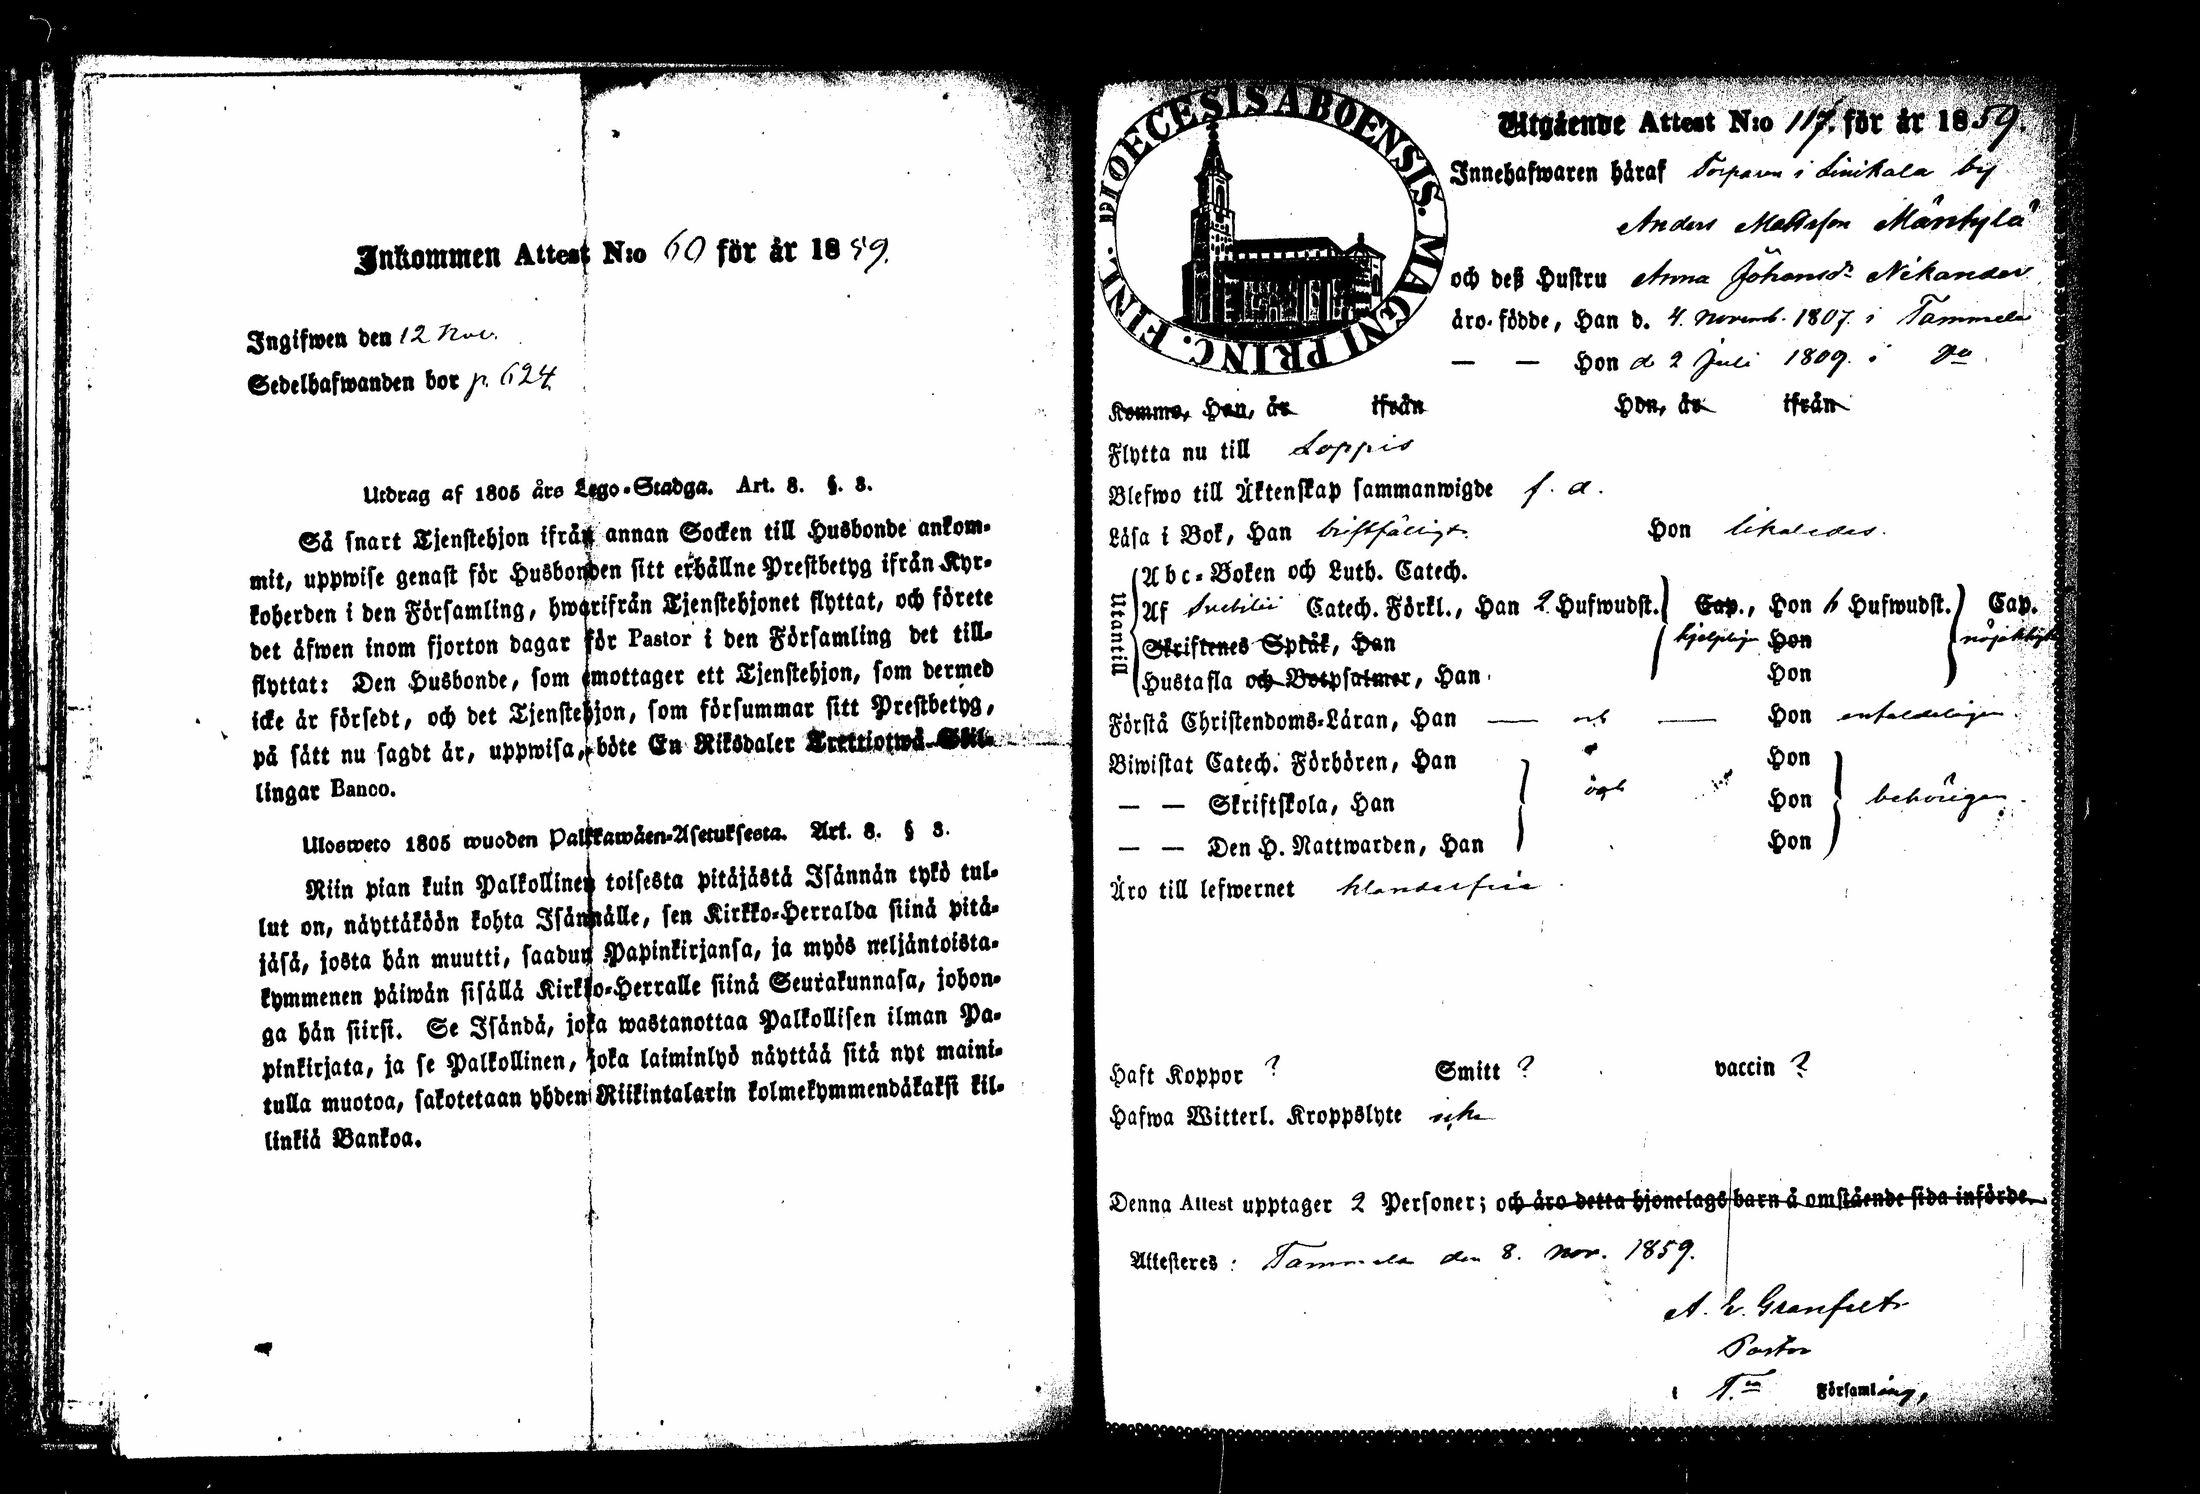 Inkommen Attest N:o 60 för år 1859.
Ingifwen den 12 Nov.
Sedelhafwanden bor p. 624.
Utdrag af 1805 års Lego-Stadga. Art. 8. §. 3.
Så snart Tjenstehjon ifrån annan Socken till Husbonde ankom-
mit, uppwise genast för Husbonden sitt erhållne Prestbetyg ifrån Kyr-
koherden i den Församling, hwarifrån Tjenstehjonet flyttat, och förete
det äfwen inom fjorton dagar för Pastor i den Församling det till-
flyttat: Den Husbonde, som emottager ett Tjenstehjon, som dermed
icke är försedt, och det Tjenstehjon, som försummar sitt Prestbetyg,
på sätt nu sagdt är, uppwisa, böte En Riksdaler Trettiotwå Skil-
lingar Banco.
Ulosweto 1805 wuoden Palkkawäen-Asetuksesta. Art. 8. § 3.
Niin pian kuin Palkollinen toisesta pitäjästä Isännän tykö tul-
lut on, näyttäköön kohta Isännälle, sen Kirkko-Herralda siinä pitä-
jäsä, josta hän muutti, saadun Papinkirjansa, ja myös neljäntoista-
kymmenen päiwän sisällä Kirkko-Herralle siinä Seurakunnasa, johon-
ga hän siirsi. Se Isändä, joka wastanottaa Palkollisen ilman Pa-
pinkirjata, ja se Palkollinen, joka laiminlyö näyttää sitä nyt maini-
tulla muotoa, sakotetaan yhden Riikintalarin kolmekymmendäkaksi kil-
linkiä Bankoa.
DIOECESIS ABOENSIS. MAGNI PRINC. FINL.
Utgående Attest N:o 117. för år 1859.
Innehafwaren häraf Torparen i Linikala by
Anders Mattsson Mäntylä
och deß Hustru Anna Johansdr Nikander
äro födde, Han d. 4. Novemb. 1807. i Tammela
— — Hon d 2 Juli 1809. i do
Komme, Han, år ifrån Hon, år ifrån
Flytta nu till Loppis
Blefwo till Äktenskap sammanwigde f. d.
Läsa i Bok, Han bristfälligt. Hon likaledes.
Utantill
Abc-Boken och Luth. Catech.
Af Svebilii Catech. Förkl., Han 2 Hufwudst. Cap., Hon 6 Hufwudst. Cap.
Skriftenes Språk, Han hjelplig Hon nöjaktigt
Hustafla och Botpsalmer, Han Hon
Förstå Christendoms-Läran, Han — och — Hon enfaldeligen
Biwistat Catech. Förhören, Han Hon
— — Skriftskola, Han och Hon behörigen.
— — Den H. Nattwarden, Han Hon
Äro till lefwernet klanderfria
Haft Koppor ? Smitt ? vaccin ?
Hafwa Witterl. Kroppslyte icke
Denna Attest upptager 2 Personer; och äro detta hjonelags barn å omstående sida införde.
Attesteres: Tammela den 8. Nov. 1859.
Granfelt
Pastor
i Församling,